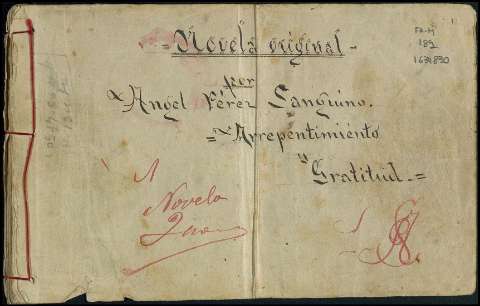 -Novela original-
por
Angel Pérez Sanguino.
=Arrepentimiento
y
Gratitud.=
FA-M
189
1634890
Novela